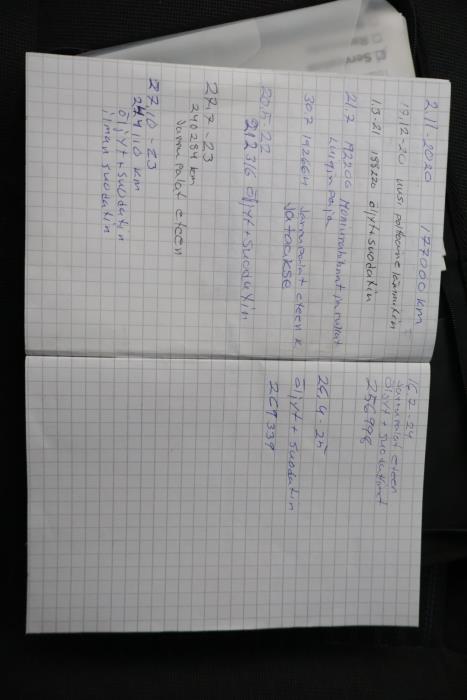 2.11-2020 177000 km
19.12-20 uusi polttoaine
1.3-21 188220 öljyt+suodatin
21.7 192200 Moniurahihnat ja rullat
Luiginpaja
30.7 192664 Jarrupalat eteen
Ja taakse
20.5-22
212316 Öljyt+suodatin
27.7-23
240284 km
Jarrupalat eteen
27.10-23
244110 km
öljyt+suodatin
ilman suodatin
16.7-24
Jarrupalat eteen
Öljyt + suodattimet
256998
26.4-25
Öljyt + suodatin
269339
Serv